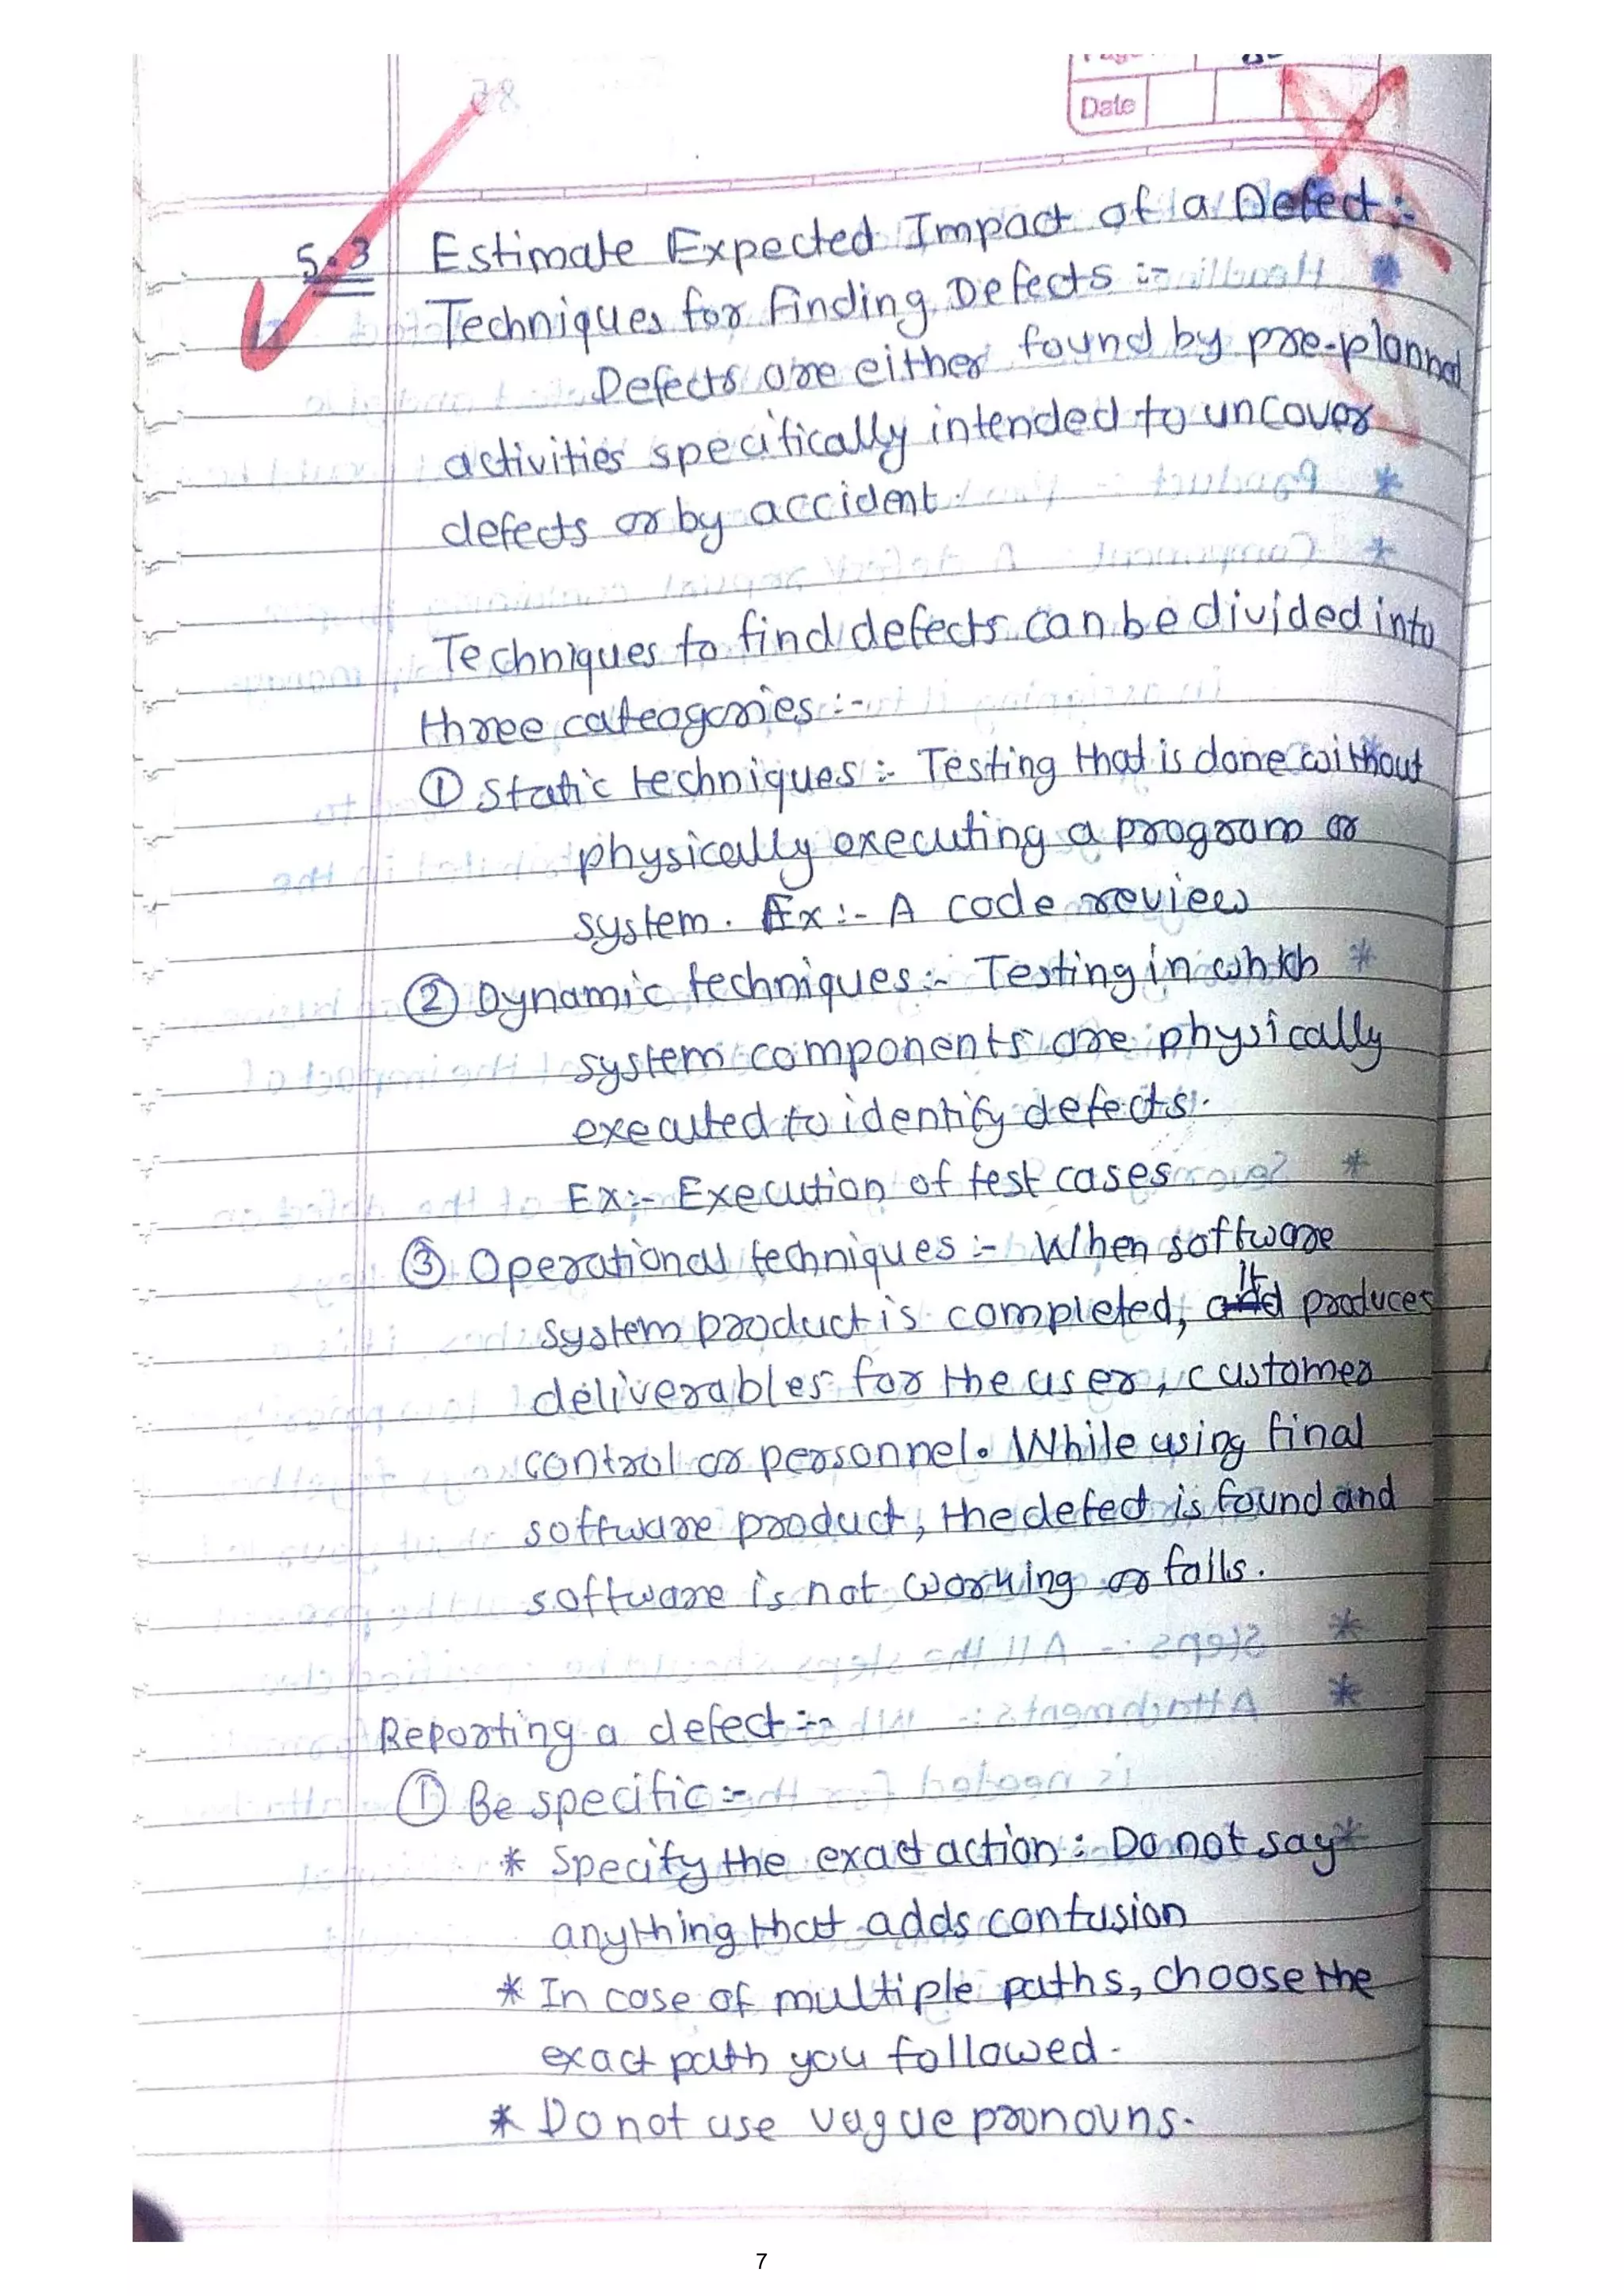 Date
5.3 Estimate Expected Impact of a Defect :-
Techniques for Finding Defects :-
Defects are either found by pre-planned
activities specifically intended to uncover
defects or by accident.
Techniques to find defects can be divided into
three cateogories :-
① Static techniques :- Testing that is done without
physically executing a program or
system. Ex :- A code review
② Dynamic techniques :- Testing in which
system components are physically
executed to identify defects.
Ex :- Execution of test cases
③ Operational techniques :- When software
system product is completed, it produces
deliverables for the user, customer
control or personnel. While using final
software product, the defect is found and
software is not working or fails.
Reporting a defect :-
① Be specific :-
* Specify the exact action : Do not say
anything that adds confusion
* In case of multiple paths, choose the
exact path you followed.
* Do not use vague pronouns.
7